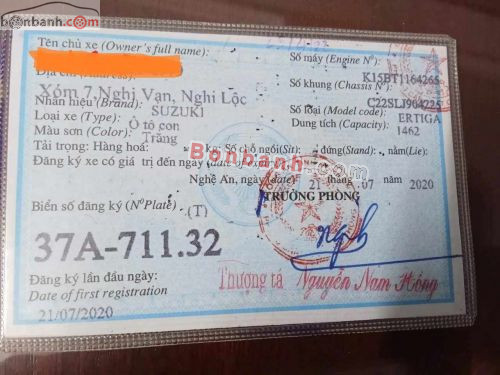 bonbanh.com
Tên chủ xe (Owner's full name):
Số máy (Engine Nº):
K15BT1164265
Số khung (Chassis Nº):
Xóm 7, Nghi Vạn, Nghi Lộc
C22SLJ904225
Nhãn hiệu (Brand): SUZUKI
Số loại (Model code): ERTIGA
Loại xe (Type): Ô tô con
Dung tích (Capacity): 1462
Màu sơn (Color): Trắng
Tải trọng: Hàng hoá: kg; Số chỗ ngồi (Sit): đứng (Stand): nằm (Lie):
Bonbanh.com
Đăng ký xe có giá trị đến ngày (date of
Nghệ An, ngày (date) 21 tháng 07 năm 2020
Biển số đăng ký (NºPlate): (T)
TRƯỞNG PHÒNG
37A-711.32
Đăng ký lần đầu ngày:
Date of first registration
Thượng tá Nguyễn Nam Hồng
21/07/2020